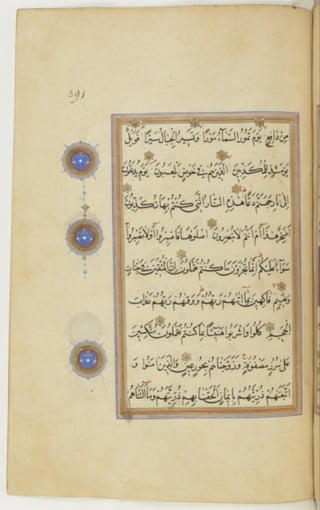 391
مِنْ دَافِعٍ يَوْمَ تَمُورُ السَّمَاءُ مَوْرًا وَتَسِيرُ الْجِبَالُ سَيْرًا فَوَيْلٌ
يَوْمَئِذٍ لِلْمُكَذِّبِينَ الَّذِينَ هُمْ فِي خَوْضٍ يَلْعَبُونَ يَوْمَ يُدَعُّونَ
إِلَى نَارِ جَهَنَّمَ دَعًّا هَذِهِ النَّارُ الَّتِي كُنْتُمْ بِهَا تُكَذِّبُونَ
أَفَسِحْرٌ هَذَا أَمْ أَنْتُمْ لَا تُبْصِرُونَ اصْلَوْهَا فَاصْبِرُوا أَوْ لَا تَصْبِرُوا
سَوَاءٌ عَلَيْكُمْ إِنَّمَا تُجْزَوْنَ مَا كُنْتُمْ تَعْمَلُونَ إِنَّ الْمُتَّقِينَ فِي جَنَّاتٍ
وَنَعِيمٍ فَاكِهِينَ بِمَا آتَاهُمْ رَبُّهُمْ وَوَقَاهُمْ رَبُّهُمْ عَذَابَ
الْجَحِيمِ كُلُوا وَاشْرَبُوا هَنِيئًا بِمَا كُنْتُمْ تَعْمَلُونَ مُتَّكِئِينَ
عَلَى سُرُرٍ مَصْفُوفَةٍ وَزَوَّجْنَاهُمْ بِحُورٍ عِينٍ وَالَّذِينَ آمَنُوا وَ
اتَّبَعَتْهُمْ ذُرِّيَّتُهُمْ بِإِيمَانٍ أَلْحَقْنَا بِهِمْ ذُرِّيَّتَهُمْ وَمَا أَلَتْنَاهُمْ